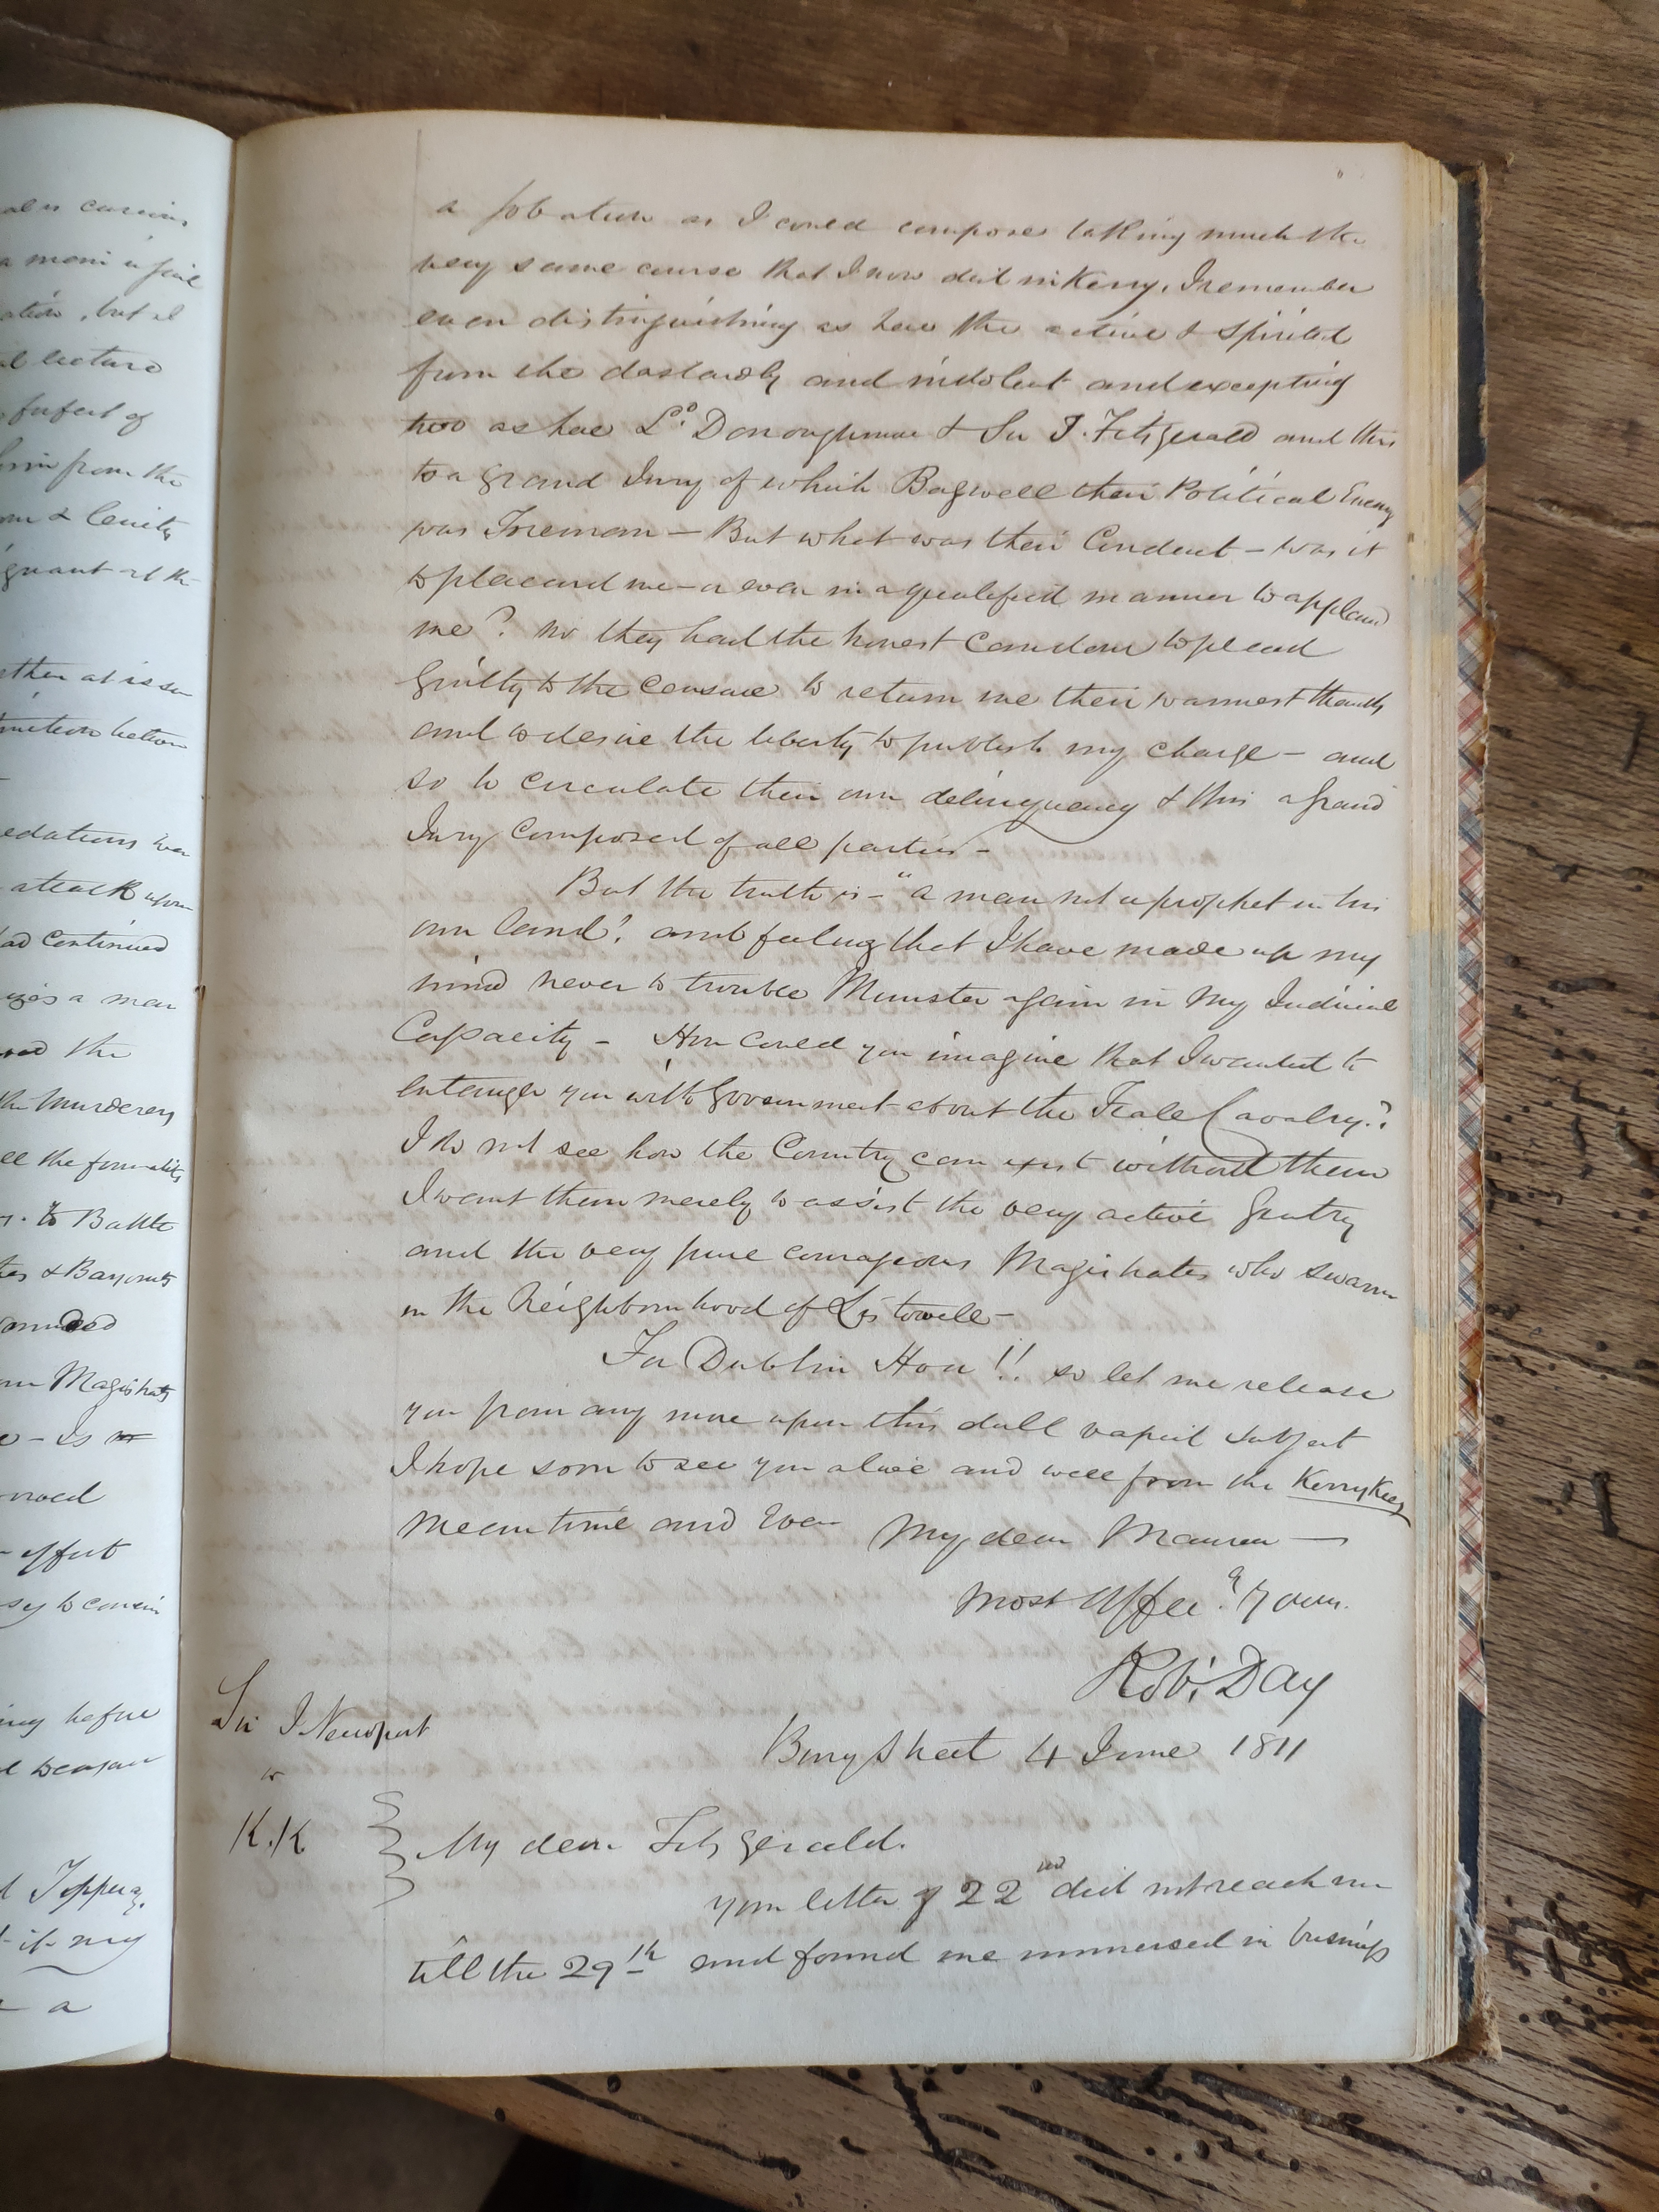 al or curious
a mani
ation, but I
l lecture
forfeit of
him from the
& lenity
at the
ther at
between
edations
attack upon
had continued
a man
the
the murderers
all the formality
to Battle
& Bayonets
wounded
Magistrates
Is
effect
to
before
Tipperary
it my
a
a Jobation as I could compose taking much the
very same course that I now did in Kerry, I remember
even distinguishing as here the active & spirited
from the dastardly and indolent and excepting
two as here Ld. Donoughmore & Sir J. Fitzgerald and this
to a grand Jury of which Bagwell their Political Enemy
was Foreman – But what was their Conduct – was it
to placard me – or even in a qualified manner to applaud
me? no they had the honest Candour to plead
Guilty to the Censure to return me their warmest thanks
and to desire the liberty to publish my charge – and
so to circulate their own delinquency & this a grand
Jury Composed of all parties –
But the truth is – "a man not a prophet in his
own land". and feeling that I have made up my
mind never to trouble Munster again in my Judicial
Capacity – How could you imagine that I wanted to
entangle you with Government about the Feale Cavalry?
I do not see how the Country can exist without them
I want them merely to assist the very active Gentry
and the very pure courageous Magistrates who swarm
in the Neighbourhood of Listowell –
For Dublin Hou!! so let me release
you from any more upon this dull vapid subject
I hope soon to see you alive and well from the Kerry Keys
Mean time and Ever My dear Maurice —
most Affece.ly Yours.
Robt. Day
Sir J Newport
to
K.K
Bury Street 4 June 1811
My dear Fitzgerald.
your letter of 22nd did not reach me
till the 29th and found me immersed in business